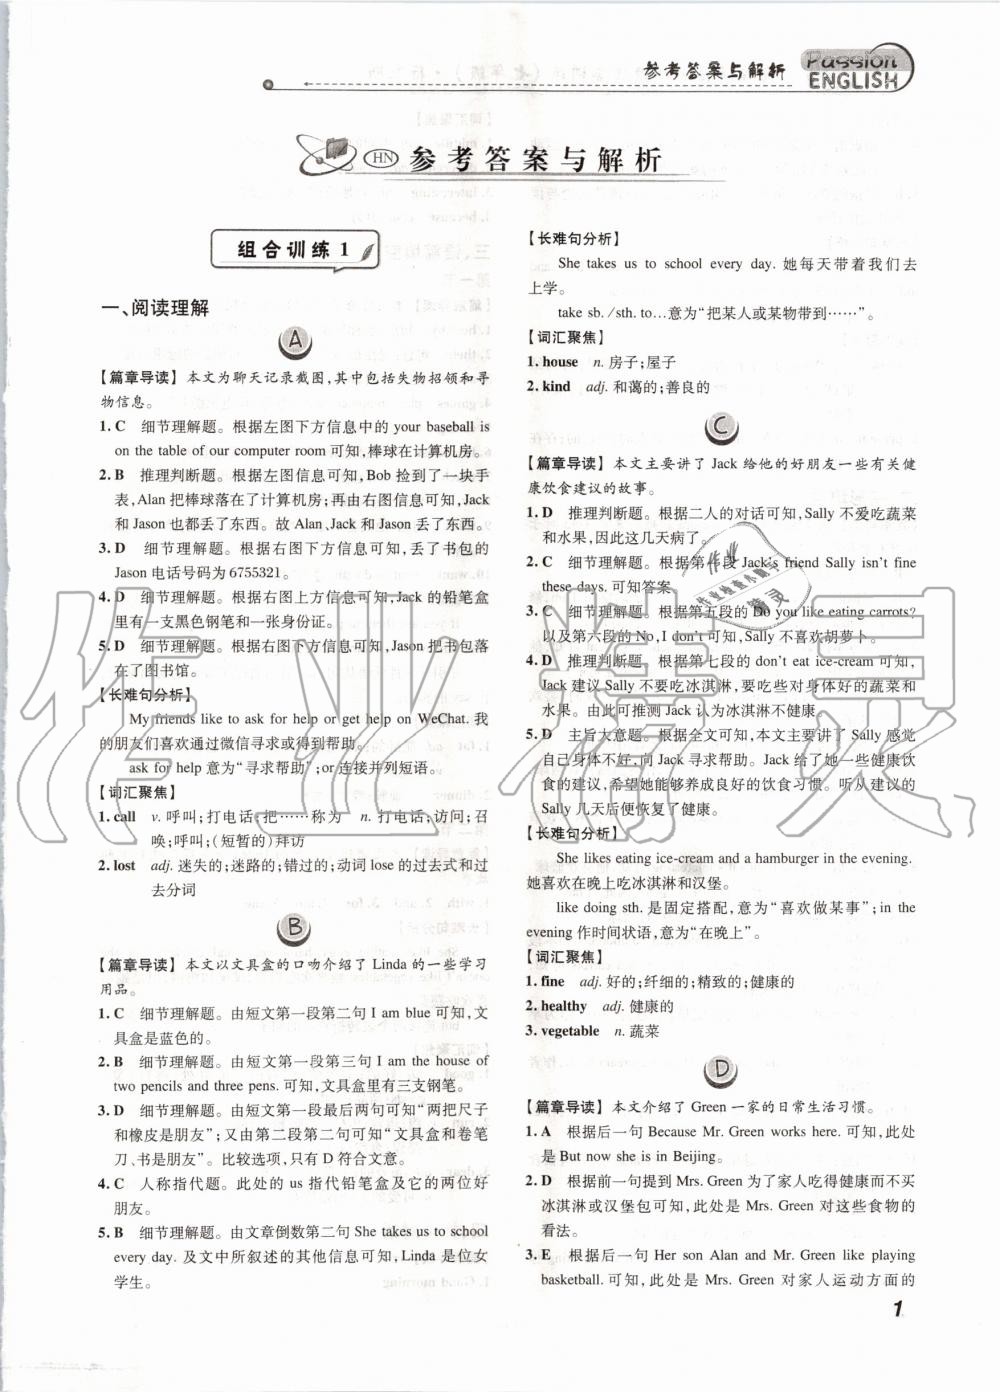 参考答案与解析
Passion ENGLISH
HN 参考答案与解析
组合训练 1
一、阅读理解
A
【篇章导读】本文为聊天记录截图,其中包括失物招领和寻
物信息。
1. C 细节理解题。根据左图下方信息中的 your baseball is
on the table of our computer room 可知,棒球在计算机房。
2. B 推理判断题。根据左图信息可知,Bob 捡到了一块手
表,Alan 把棒球落在了计算机房;再由右图信息可知,Jack
和 Jason 也都丢了东西。故 Alan、Jack 和 Jason 丢了东西。
3. D 细节理解题。根据右图下方信息可知,丢了书包的
Jason 电话号码为 6755321。
4. D 细节理解题。根据右图上方信息可知,Jack 的铅笔盒
里有一支黑色钢笔和一张身份证。
5. D 细节理解题。根据右图下方信息可知,Jason 把书包落
在了图书馆。
【长难句分析】
My friends like to ask for help or get help on WeChat. 我
的朋友们喜欢通过微信寻求或得到帮助。
ask for help 意为“寻求帮助”;or 连接并列短语。
【词汇聚焦】
1. call v. 呼叫;打电话;把……称为 n. 打电话;访问;召
唤;呼叫;(短暂的)拜访
2. lost adj. 迷失的;迷路的;错过的;动词 lose 的过去式和过
去分词
B
【篇章导读】本文以文具盒的口吻介绍了 Linda 的一些学习
用品。
1. C 细节理解题。由短文第一段第二句 I am blue 可知,文
具盒是蓝色的。
2. B 细节理解题。由短文第一段第三句 I am the house of
two pencils and three pens. 可知,文具盒里有三支钢笔。
3. D 细节理解题。由短文第一段最后两句可知“两把尺子
和橡皮是朋友”;又由第二段第二句可知“文具盒和卷笔
刀、书是朋友”。比较选项,只有 D 符合文意。
4. C 人称指代题。此处的 us 指代铅笔盒及它的两位好
朋友。
5. B 细节理解题。由文章倒数第二句 She takes us to school
every day. 及文中所叙述的其他信息可知,Linda 是位女
学生。
【长难句分析】
She takes us to school every day. 她每天带着我们去
上学。
take sb. /sth. to…意为“把某人或某物带到……”。
【词汇聚焦】
1. house n. 房子;屋子
2. kind adj. 和蔼的;善良的
C
【篇章导读】本文主要讲了 Jack 给他的好朋友一些有关健
康饮食建议的故事。
1. D 推理判断题。根据二人的对话可知,Sally 不爱吃蔬菜
和水果,因此这几天病了。
2. C 细节理解题。根据第一段 Jack's friend Sally isn't fine
these days. 可知答案。
3. C 细节理解题。根据第五段的 Do you like eating carrots?
以及第六段的 No, I don't 可知,Sally 不喜欢胡萝卜。
4. D 推理判断题。根据第七段的 don't eat ice-cream 可知,
Jack 建议 Sally 不要吃冰淇淋,要吃些对身体好的蔬菜和
水果。由此可推测 Jack 认为冰淇淋不健康。
5. D 主旨大意题。根据全文可知,本文主要讲了 Sally 感
觉自己身体不好,并告诉了 Jack。Jack 给了她一些健康饮
食的建议,希望她能够养成良好的饮食习惯。听从建议的
Sally 几天后便恢复了健康。
【长难句分析】
She likes eating ice-cream and a hamburger in the evening.
她喜欢在晚上吃冰淇淋和汉堡。
like doing sth. 是固定搭配,意为“喜欢做某事”;in the
evening 作时间状语,意为“在晚上”。
【词汇聚焦】
1. fine adj. 好的;纤细的;精致的;健康的
2. healthy adj. 健康的
3. vegetable n. 蔬菜
D
【篇章导读】本文介绍了 Green 一家的日常生活习惯。
1. A 根据后一句 Because Mr. Green works here. 可知,此处
是 But now she is in Beijing.。
2. D 根据前一句提到 Mrs. Green 为了家人吃得健康而不买
冰淇淋或汉堡包可知,此处是 Mrs. Green 对这些食物的
看法。
3. E 根据后一句 Her son Alan and Mr. Green like playing
basketball. 可知,此处是 Mrs. Green 对家人运动方面的
1
作业精灵